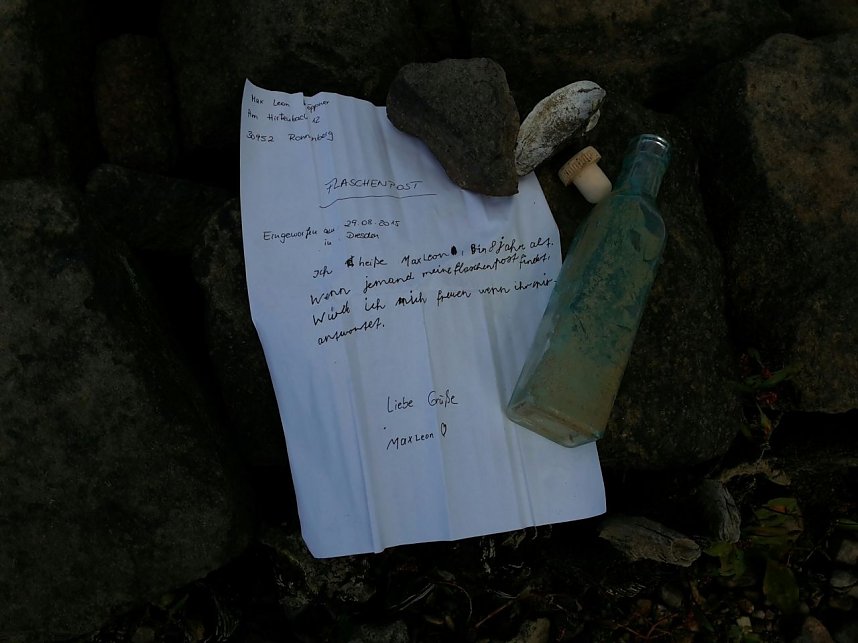 Max Leon
Am Hirtenbach 12
30952 Ronnenberg
FLASCHENPOST
Eingeworfen am 29.08.2015
in Dresden
Ich heiße MaxLeon, bin 8 jahr alt.
Wenn jemand meine flaschenpost findet,
Würde ich mich freuen wenn ihr mir
antwortet.
Liebe Grüße
MaxLeon